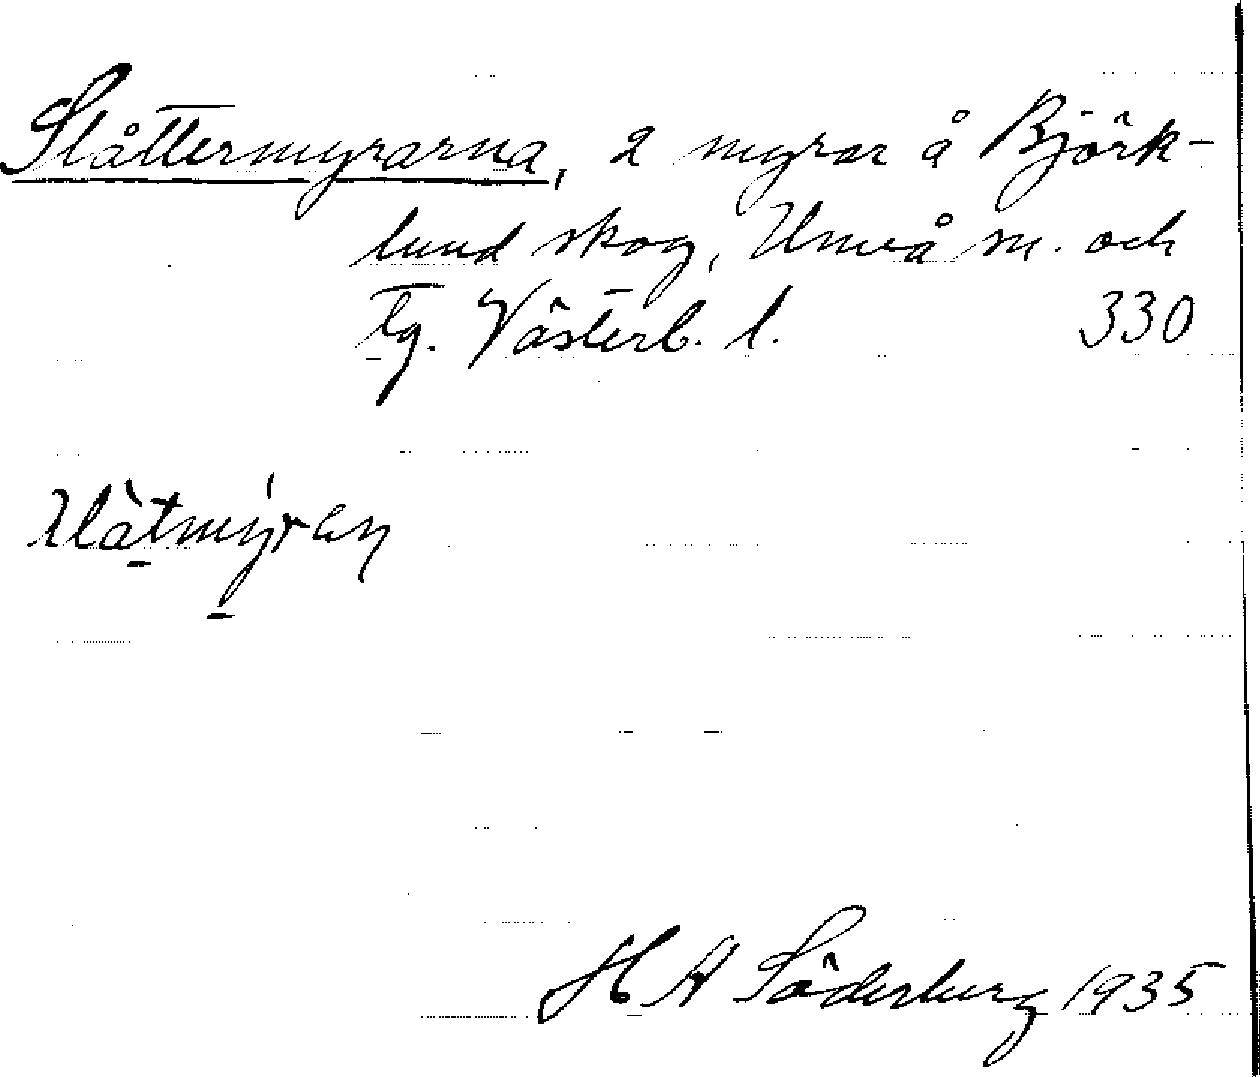 Slåttermyrarna, 2 myrar å Björk-
lund skog, Umeå sn. och
tg. Västerb. l. 330
H A Söderberg 1935